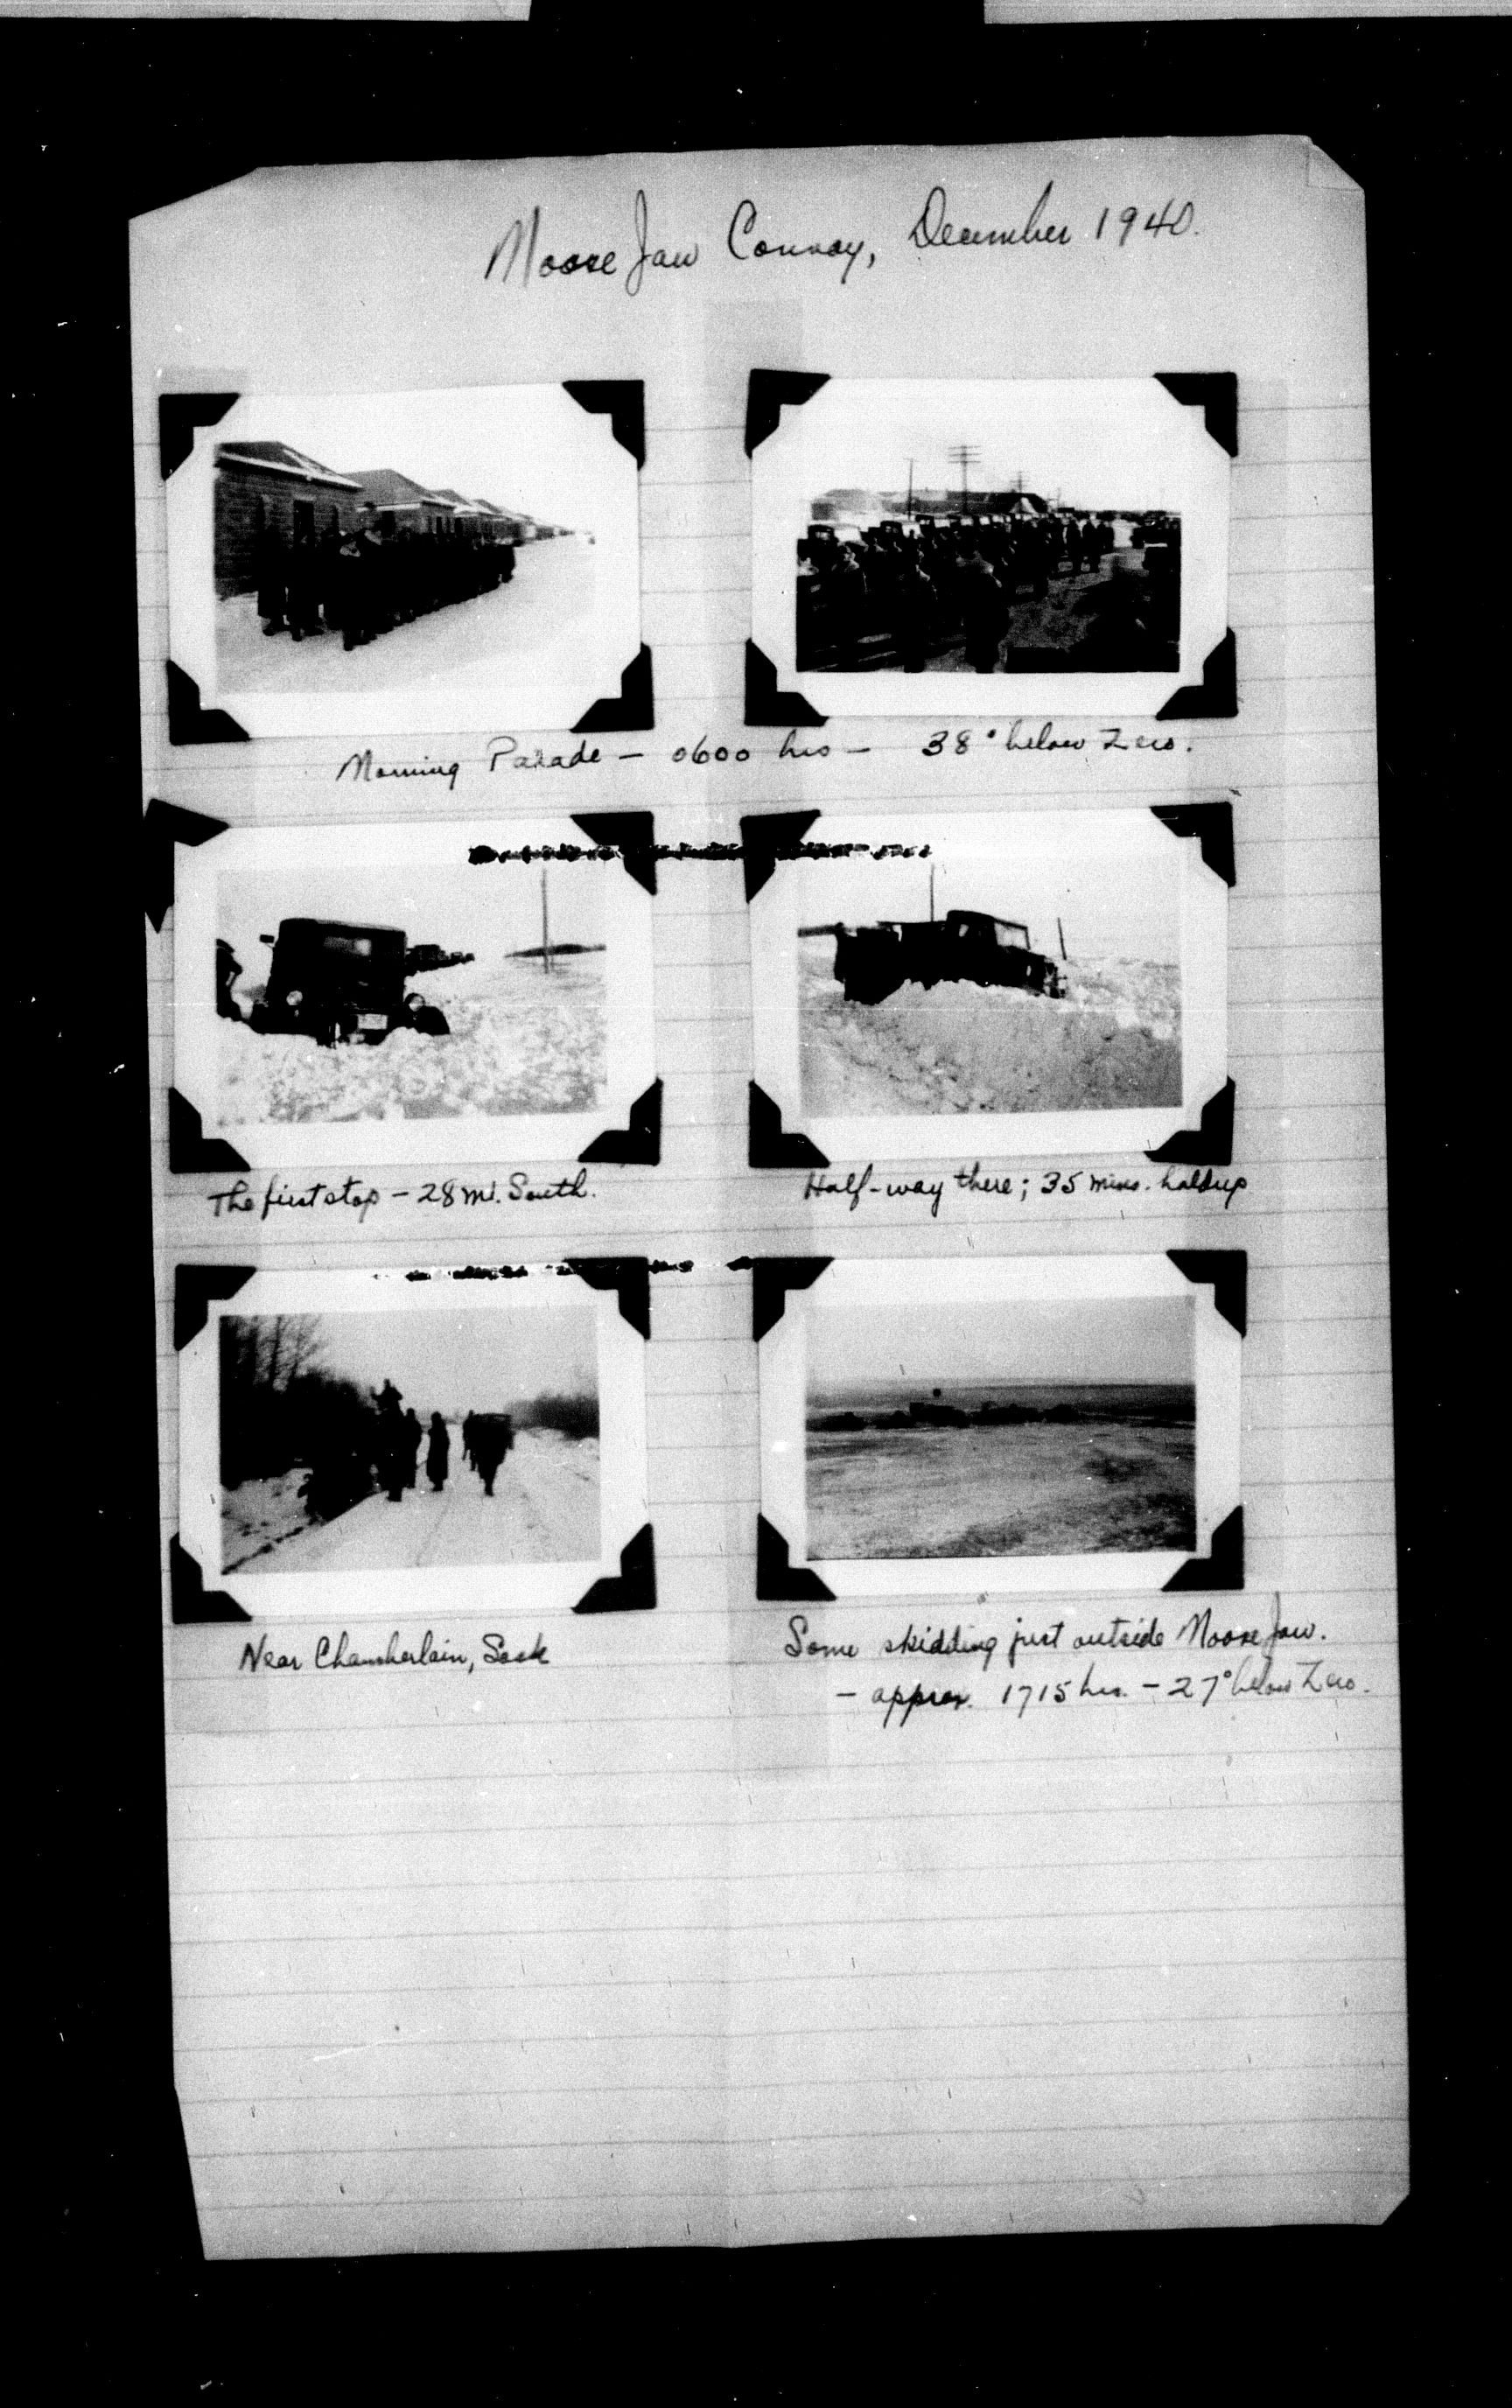 Moose Jaw Convoy, December 1940.
Morning Parade - 0600 hrs - 38° below Zero.
The first stop - 28 mi. South.
Half-way there; 35 mins. holdup
Near Chamberlain, Sask
Some skidding just outside Moose Jaw.
- approx. 1715 hrs. - 27° below Zero.